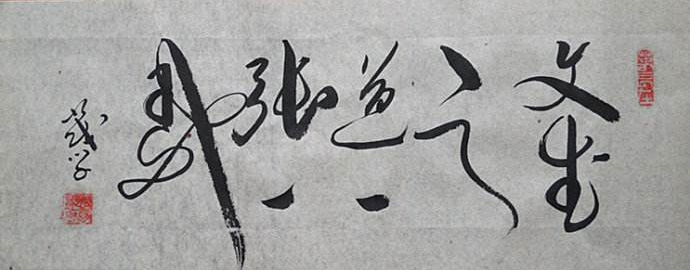 文武
之
道一
張一
弛